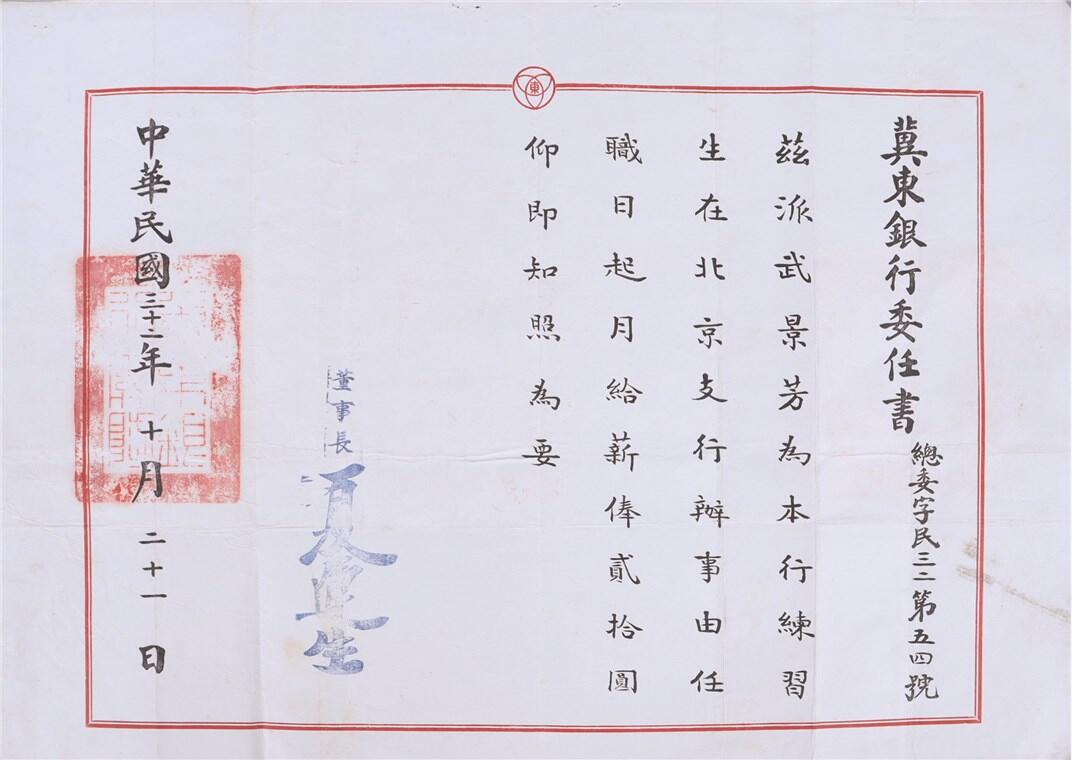 冀東銀行委任書
總委字民三二第五四號
茲派武景芳為本行練習
生在北京支行辦事由任
職日起月給薪俸貳拾圓
仰即知照為要
董事長
中華民國三十二年十月二十一日
東